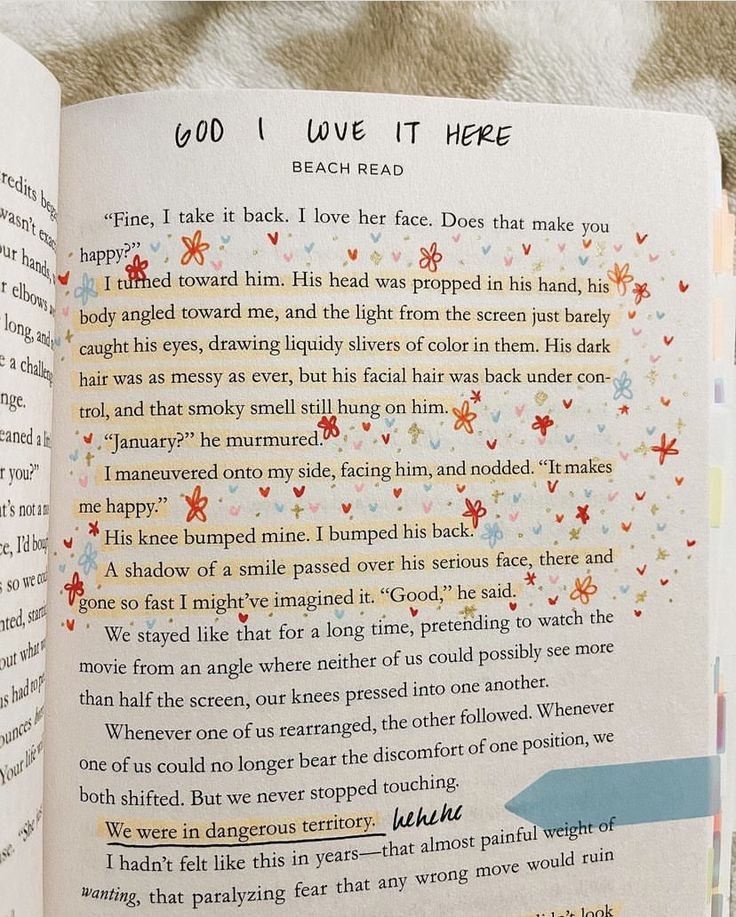 redits
wasn't
ur hands,
r elbows
long, and
e a challenge
nge.
eaned a
r you?"
t's not a
ce, I'd
s so we
out what
Your life
"She
GOD I LOVE IT HERE
BEACH READ
“Fine, I take it back. I love her face. Does that make you
happy?”
I turned toward him. His head was propped in his hand, his
body angled toward me, and the light from the screen just barely
caught his eyes, drawing liquidy slivers of color in them. His dark
hair was as messy as ever, but his facial hair was back under con-
trol, and that smoky smell still hung on him.
“January?” he murmured.
I maneuvered onto my side, facing him, and nodded. “It makes
me happy.”
His knee bumped mine. I bumped his back.
A shadow of a smile passed over his serious face, there and
gone so fast I might’ve imagined it. “Good,” he said.
We stayed like that for a long time, pretending to watch the
movie from an angle where neither of us could possibly see more
than half the screen, our knees pressed into one another.
Whenever one of us rearranged, the other followed. Whenever
one of us could no longer bear the discomfort of one position, we
both shifted. But we never stopped touching.
We were in dangerous territory. hehehe
I hadn’t felt like this in years—that almost painful weight of
wanting, that paralyzing fear that any wrong move would ruin
look